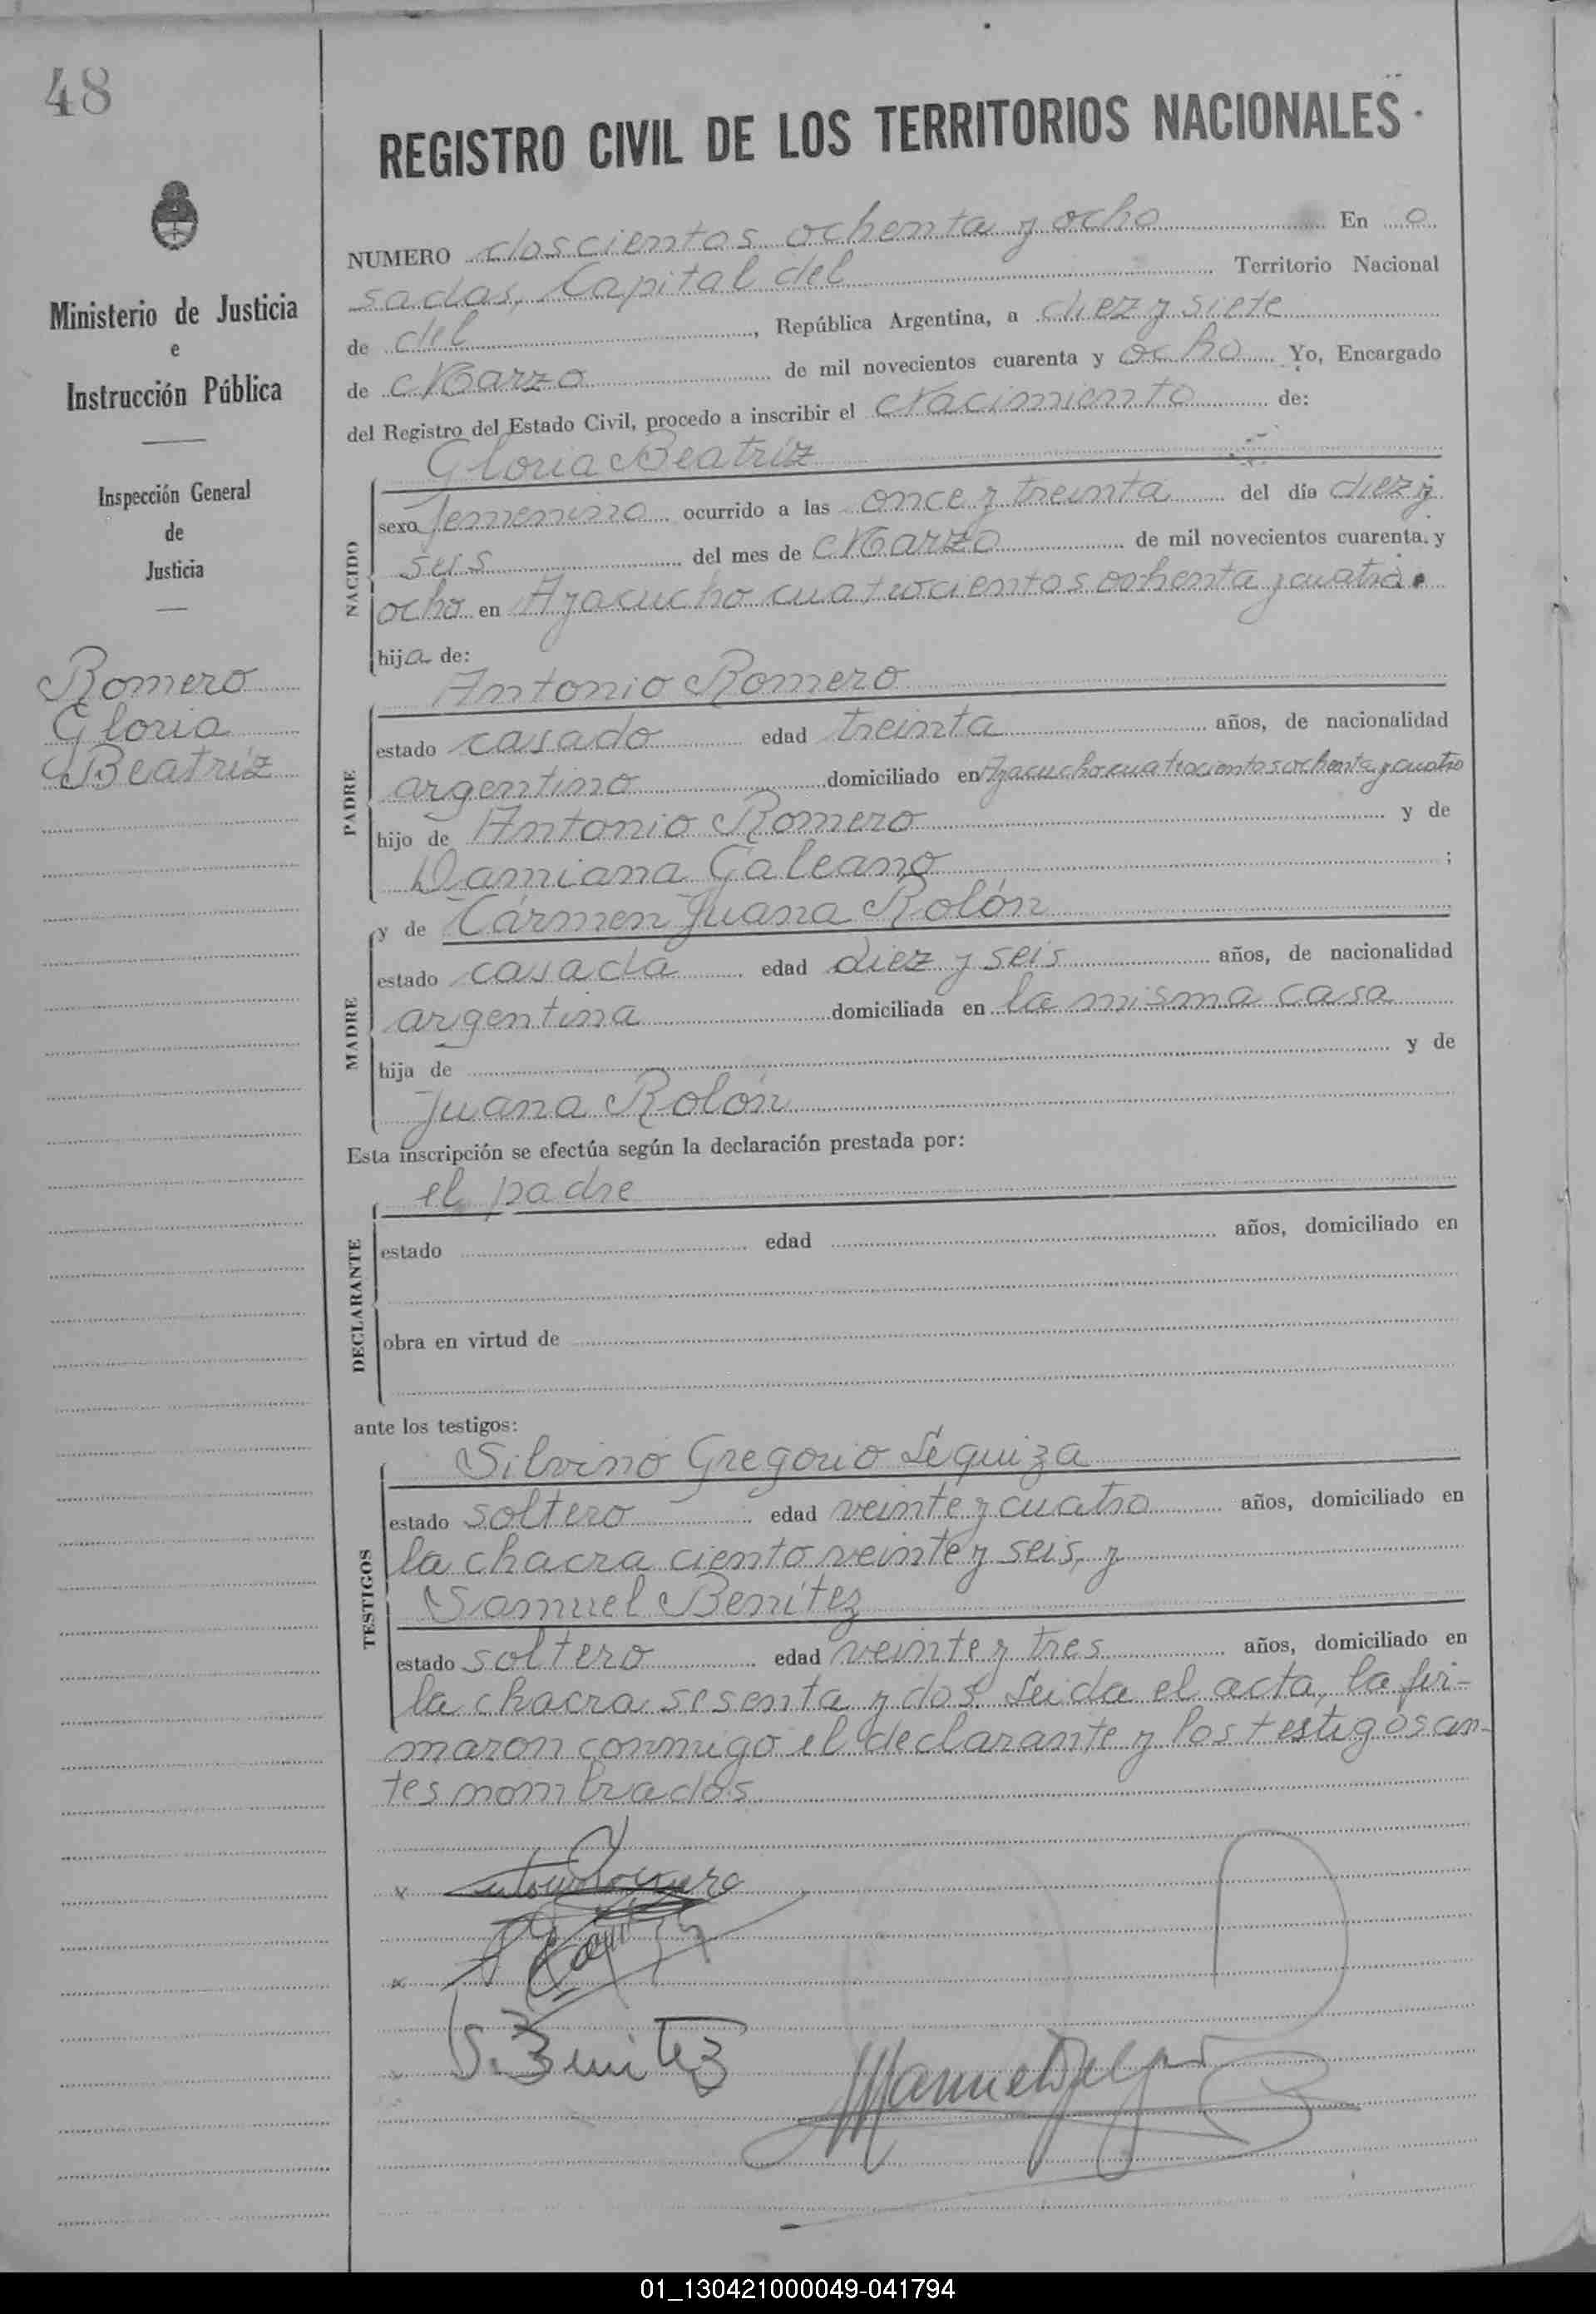 48
REGISTRO CIVIL DE LOS TERRITORIOS NACIONALES
Ministerio de Justicia
e
Instrucción Pública
Inspección General
de
Justicia
Romero
Gloria
Beatriz
NUMERO doscientos ochenta y ocho En o
sadas, Capital del Territorio Nacional
de del, República Argentina, a diez y siete
de Marzo de mil novecientos cuarenta y ocho Yo, Encargado
del Registro del Estado Civil, procedo a inscribir el Nacimiento de:
Gloria Beatriz
NACIDO
sexo femenino ocurrido a las once y treinta del día diez y
seis del mes de Marzo de mil novecientos cuarenta y
ocho en Ayacucho cuatrocientos ochenta y cuatro
hija de:
Antonio Romero
PADRE
estado casado edad treinta años, de nacionalidad
argentino domiciliado en Ayacucho cuatrocientos ochenta y cuatro
hijo de Antonio Romero y de
Damiana Galeano ;
y de Cármen Juana Rolón
MADRE
estado casada edad diez y seis años, de nacionalidad
argentina domiciliada en la misma casa
hija de y de
Juana Rolón
Esta inscripción se efectúa según la declaración prestada por:
el padre
DECLARANTE
estado edad años, domiciliado en
obra en virtud de
ante los testigos:
Silvino Gregorio Lequiza
TESTIGOS
estado soltero edad veinte y cuatro años, domiciliado en
la chacra ciento veinte y seis, y
Samuel Benítez
estado soltero edad veinte y tres años, domiciliado en
la chacra sesenta y dos. Leida el acta, la fir-
maron conmigo el declarante y los testigos an-
tes nombrados
Antonio Romero
S. Benitez
01_130421000049-041794